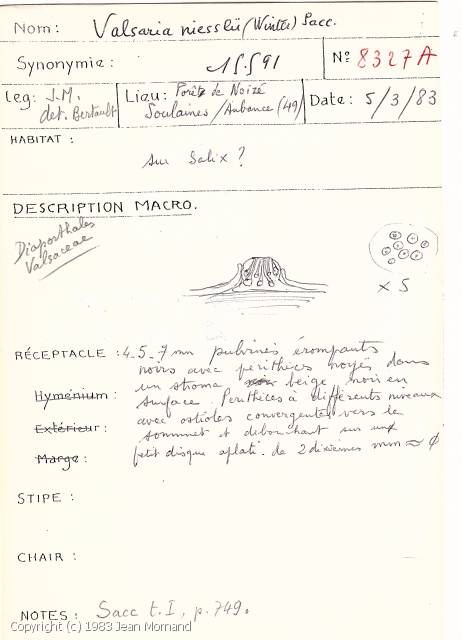 Nom : Valsaria niesslii (Winter) Sacc.
Synonymie : 15.591 Nº 8327A
Leg : J.M. Lieu : Forêt de Noizé Date : 5/3/83
det. Bertault Soulaines/Aubance (49)
HABITAT :
sur Salix ?
DESCRIPTION MACRO.
Diaporthales
Valsaceae
x 5
RÉCEPTACLE : 4-5-7 mm pulvinés érompants
noirs avec périthèces noyés dans
un stroma beige, noir en
Hyménium : surface. Perithèces à différents niveaux
avec ostioles convergentes vers le
Extérieur : sommet et débouchant sur un
Marge : petit disque aplati. de 2 dixièmes mm ≈ φ
STIPE :
CHAIR :
NOTES : Sacc t. I, p. 749.
Copyright (c) 1983 Jean Mornand